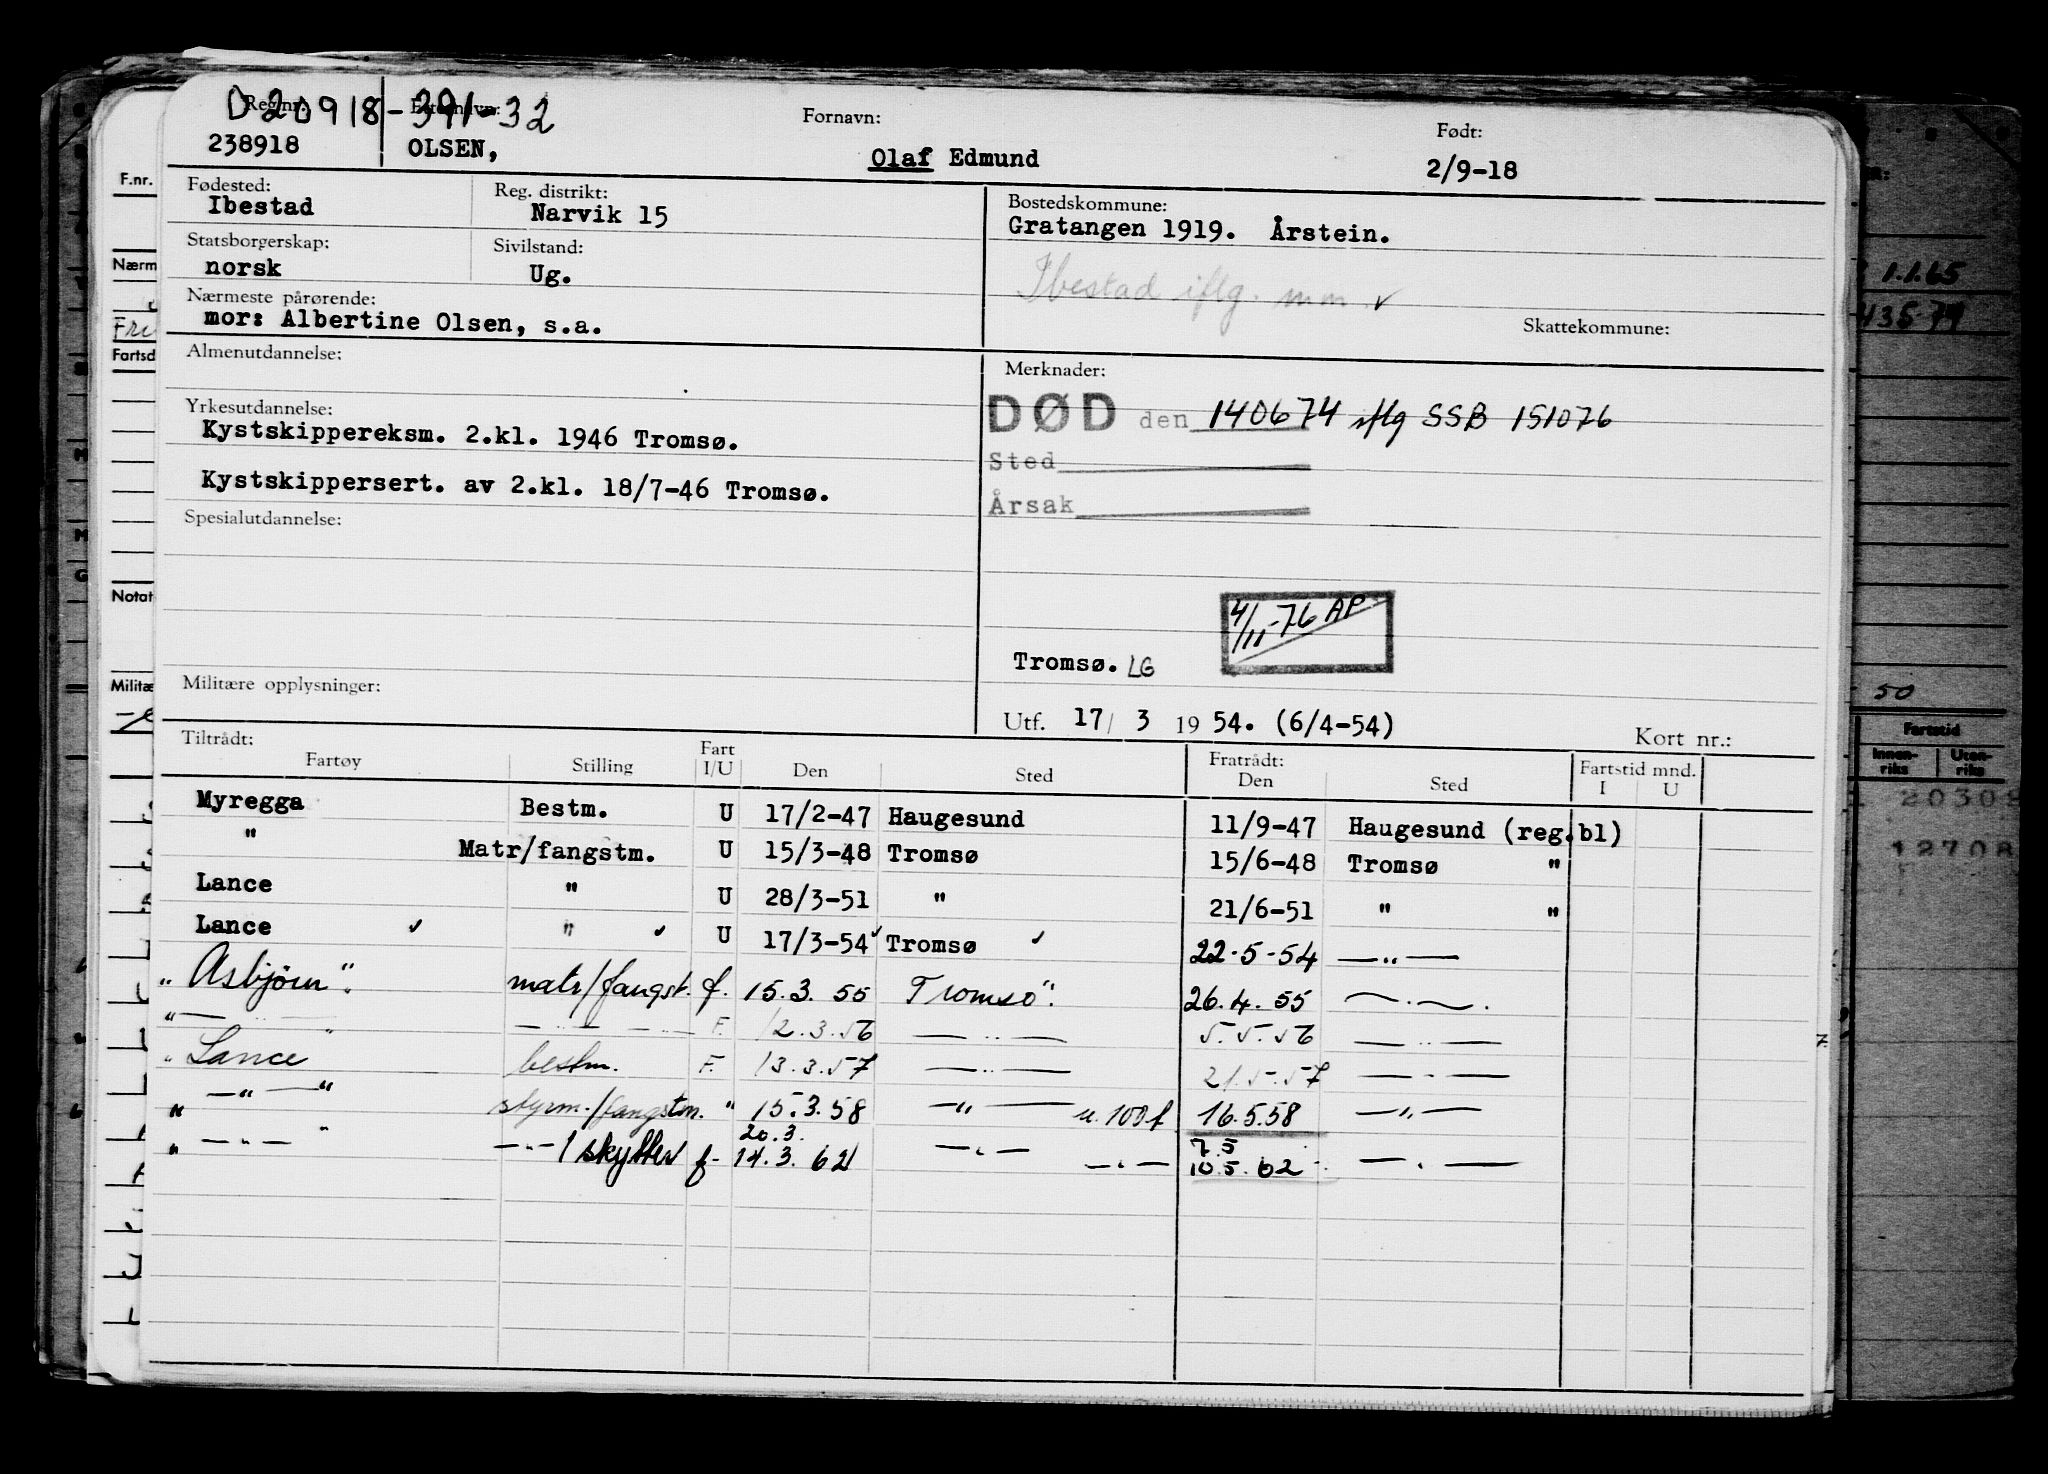 D 20918-391-32
Reg.nr. Etternavn: Fornavn: Født:
238918 OLSEN, Olaf Edmund 2/9-18
Fødested: Reg. distrikt: Bostedskommune:
Ibestad Narvik 15 Gratangen 1919. Årstein.
Statsborgerskap: Sivilstand:
norsk Ug. Ibestad iflg. mm ✓
Nærmeste pårørende:
mor: Albertine Olsen, s.a. Skattekommune:
Almenutdannelse: Merknader:
Yrkesutdannelse: DØD den 140674 iflg SSB 151076
Kystskippereksm. 2.kl. 1946 Tromsø.
Sted
Kystskippersert. av 2.kl. 18/7-46 Tromsø.
Årsak
Spesialutdannelse:
4/11-76 AP
Tromsø. LG
Militære opplysninger:
Utf. 17/ 3 19 54. (6/4-54) Kort nr.:
Tiltrådt: Fart Fratrådt: Fartstid mnd.
Fartøy Stilling I/U Den Sted Den Sted I U
Myregga Bestm. U 17/2-47 Haugesund 11/9-47 Haugesund (reg.bl)
" Matr/fangstm. U 15/3-48 Tromsø 15/6-48 Tromsø "
Lance " U 28/3-51 " 21/6-51 " "
Lance ✓ " ✓ U 17/3-54 ✓ Tromsø ✓ 22-5-54 —"—
"Asbjørn". matr/fangst. f. 15.3.55 Tromsø". 26.4.55 —.—.
"— " — —"— —"— F. 12.3.56 —"— 5.5.56 —"—
"Lance bestm. F. 13.3.57 —"— 21.5.57 —"—
" —"— " styrm./fangstm. " 15.3.58 —"— u. 100 f 16.5.58 —"—
20.3. 7.5
" —"— " —"—/skytter f- 14.3.62 —"— —"— 10.5.62 —"—
F.nr.
Nærm
Fri
Fartsd
Notat
Militæ
1.1.65
435-79
50
Fartstid
Innen-riks Uten-riks
20309
12708